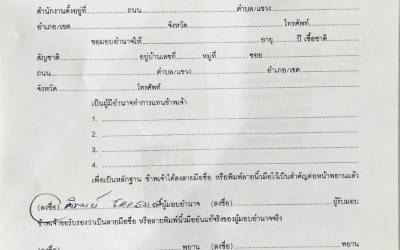 สำนักงานตั้งอยู่ที่..........ถนน..........ตำบล/แขวง..........
อำเภอ/เขต..........จังหวัด..........โทรศัพท์..........
ขอมอบอำนาจให้..........อายุ..........ปี เชื้อชาติ..........
สัญชาติ..........อยู่บ้านเลขที่..........หมู่ที่..........ซอย..........
ถนน..........ตำบล/แขวง..........อำเภอ/เขต..........
จังหวัด..........โทรศัพท์..........
เป็นผู้มีอำนาจทำการแทนข้าพเจ้า
1. ..........
2. ..........
3. ..........
4. ..........
เพื่อเป็นหลักฐาน ข้าพเจ้าได้ลงลายมือชื่อ หรือพิมพ์ลายนิ้วมือไว้เป็นสำคัญต่อหน้าพยานแล้ว
(ลงชื่อ) ผู้มอบอำนาจ (ลงชื่อ)..........ผู้รับมอบ
ข้าพเจ้าขอรับรองว่าเป็นลายมือชื่อ หรือลายพิมพ์นิ้วมืออันแท้จริงของผู้มอบอำนาจจริง
(ลงชื่อ)..........พยาน (ลงชื่อ)..........พยาน